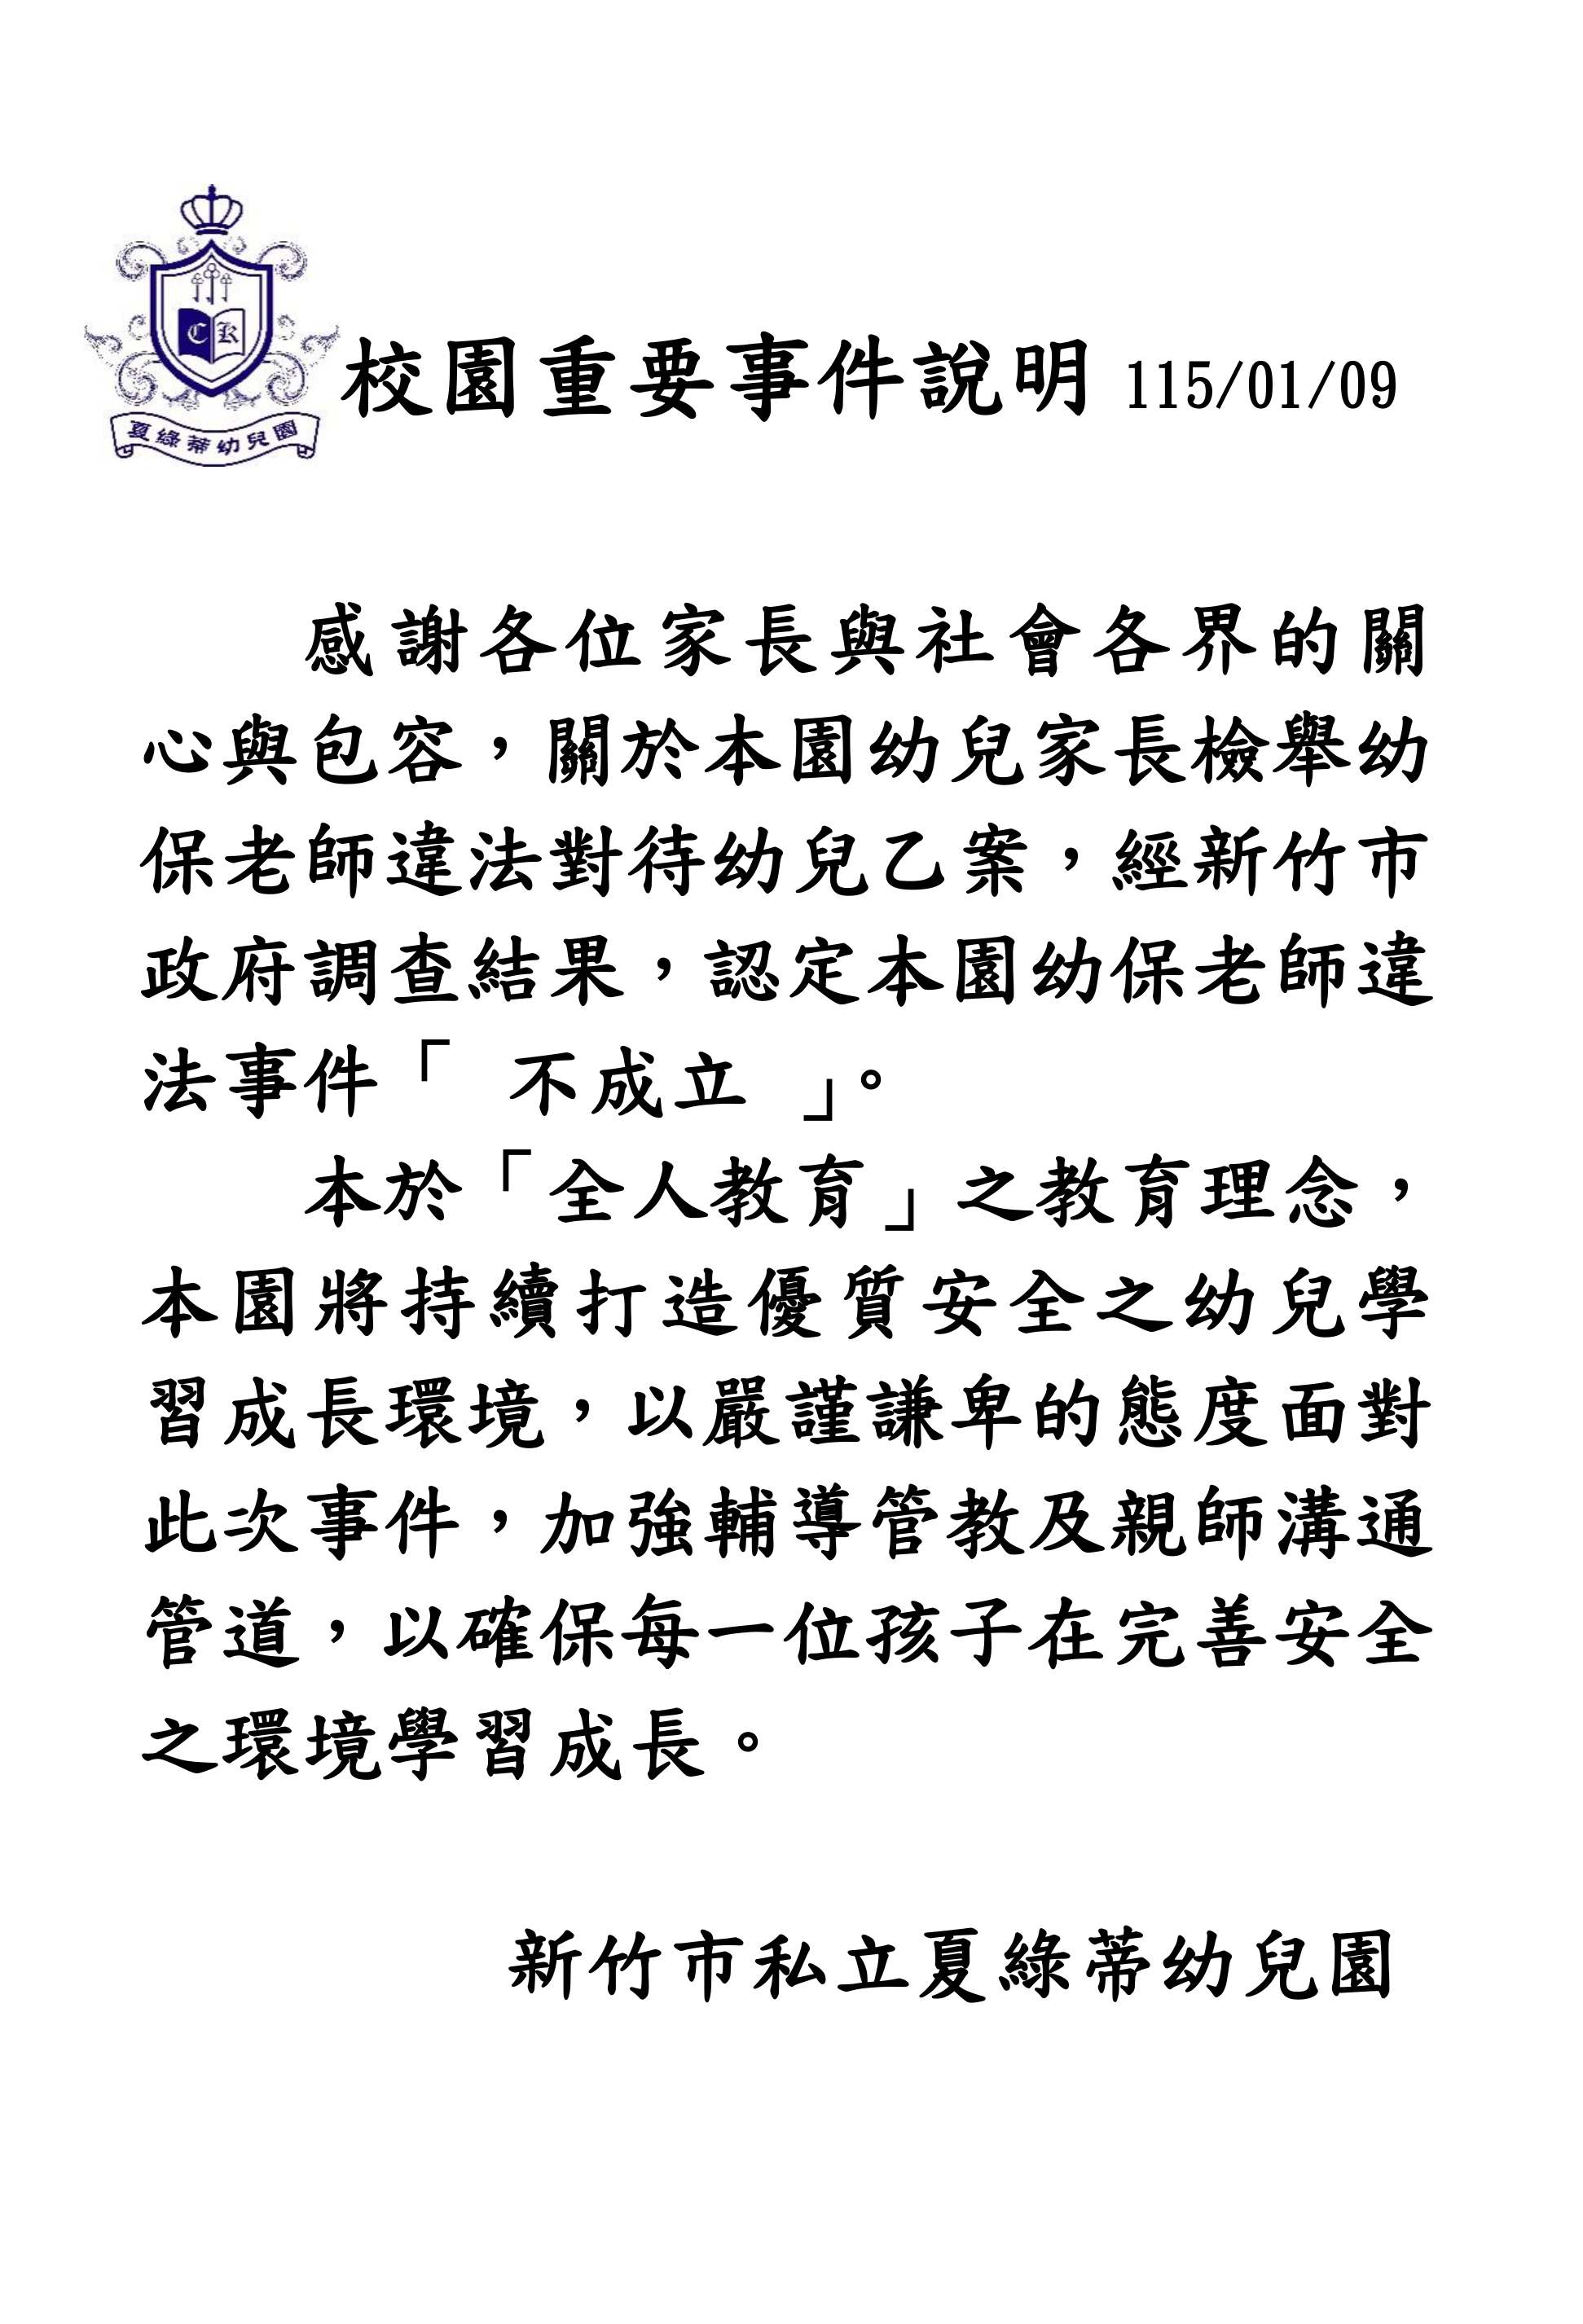 CK
夏綠蒂幼兒園
校園重要事件說明 115/01/09
感謝各位家長與社會各界的關
心與包容，關於本園幼兒家長檢舉幼
保老師違法對待幼兒乙案，經新竹市
政府調查結果，認定本園幼保老師違
法事件「 不成立 」。
本於「全人教育」之教育理念，
本園將持續打造優質安全之幼兒學
習成長環境，以嚴謹謙卑的態度面對
此次事件，加強輔導管教及親師溝通
管道，以確保每一位孩子在完善安全
之環境學習成長。
新竹市私立夏綠蒂幼兒園